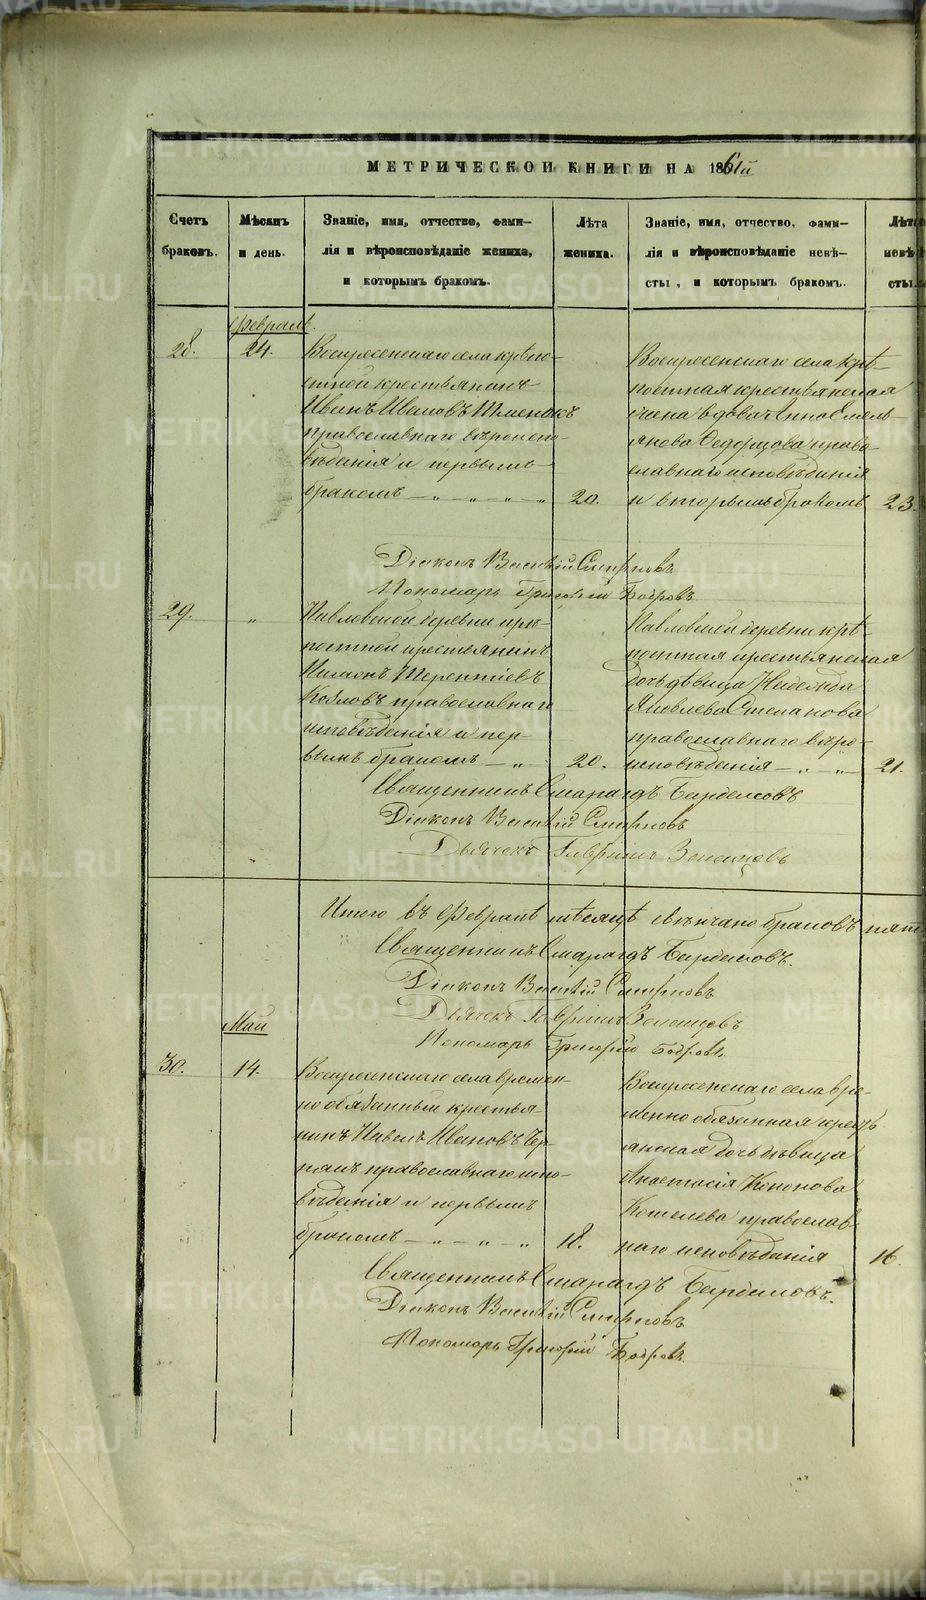 МЕТРИЧЕСКОЙ КНИГИ НА 1861й
Счетъ браковъ.
Мѣсяцъ и день.
Званіе, имя, отчество, фами-
лія и вѣроисповѣданіе жениха,
и которымъ бракомъ.
Лѣта жениха.
Званіе, имя, отчество, фами-
лія и вѣроисповѣданіе невѣ-
сты, и которымъ бракомъ.
Лѣта невѣ сты.
Февраль.
28.
24.
Воскресенскаго села крѣпо-
стной крестьянинъ
Иванъ Ивановъ
православнаго вѣроиспо-
вѣданія и первымъ
бракомъ — „ — „ — „ — „
20.
Воскресенскаго села крѣ-
постная крестьянская
жена вдова Анна Емель-
янова Ѳедорцова право-
славнаго исповѣданія
и вторымъ бракомъ
23.
Діаконъ Василій Смирновъ
Пономарь Григорій Бобровъ
29.
„
Павловской деревни крѣ-
постной крестьянинъ
Терентіевъ
Козловъ православнаго
исповѣданія и пер-
вымъ бракомъ — „
20.
Павловской деревни крѣ-
постная крестьянская
дочь дѣвица Надежда
Яковлева Степанова
православнаго вѣро-
исповѣданія — „ — „
21.
Священникъ Смарагдъ
Діаконъ Василій Смирновъ
Дьячекъ Гавріилъ
Итого въ Февралѣ мѣсяцѣ свѣнчано браковъ пять
Священникъ Смарагдъ
Діаконъ Василій Смирновъ
Дьячекъ Гавріилъ
Пономарь Григорій Бобровъ.
Май
30.
14.
Воскресенскаго села времен-
но обязанный крестья-
нинъ Павелъ Ивановъ
православнаго испо-
вѣданія и первымъ
бракомъ — „ — „ — „
18.
Воскресенскаго села вре-
менно обязанная кресть
янская дочь дѣвица
Анастасія Кононова
Кошелева православ-
наго исповѣданія
16.
Священникъ Смарагдъ
Діаконъ Василій Смирновъ
Пономарь Григорій Бобровъ
METRIKI.GASO-URAL.RU